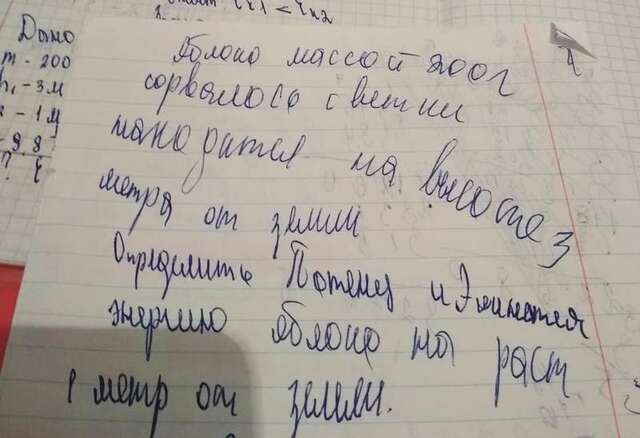 Дано
m - 200
h₁ - 3м
- 1м
9 8
?
Яблоко массой 200г
сорвалось с ветки
находится на высоте 3
метра от земли
Определите Потенц и Экинетич
энергию яблока на раст
1 метр от земли.